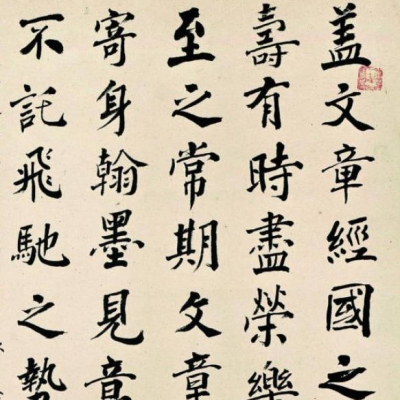 盖文章經國之
壽有時盡榮樂
至之常期文章
寄身翰墨見意
不託飛馳之勢